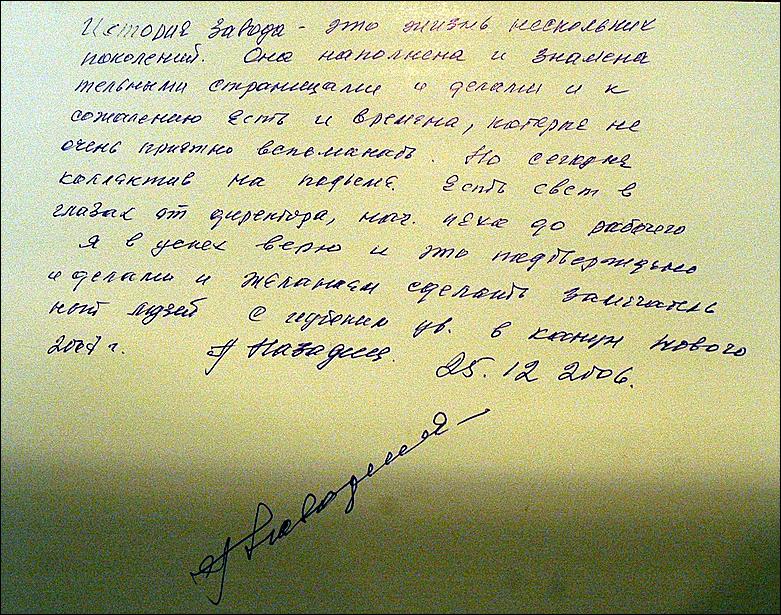 История завода - это жизнь нескольких
поколений. Она наполнена и знамена
тельными страницами и делами и к
сожалению есть и времена, которые не
очень приятно вспоминать. Но сегодня
коллектив на подъеме. Есть свет в
глазах от директора, нач. цеха до рабочего
Я в успех верю и это подтверждено
и делами и желанием сделать замечатель
ный музей С ув. в канун нового
2007 г. 25.12 2006.